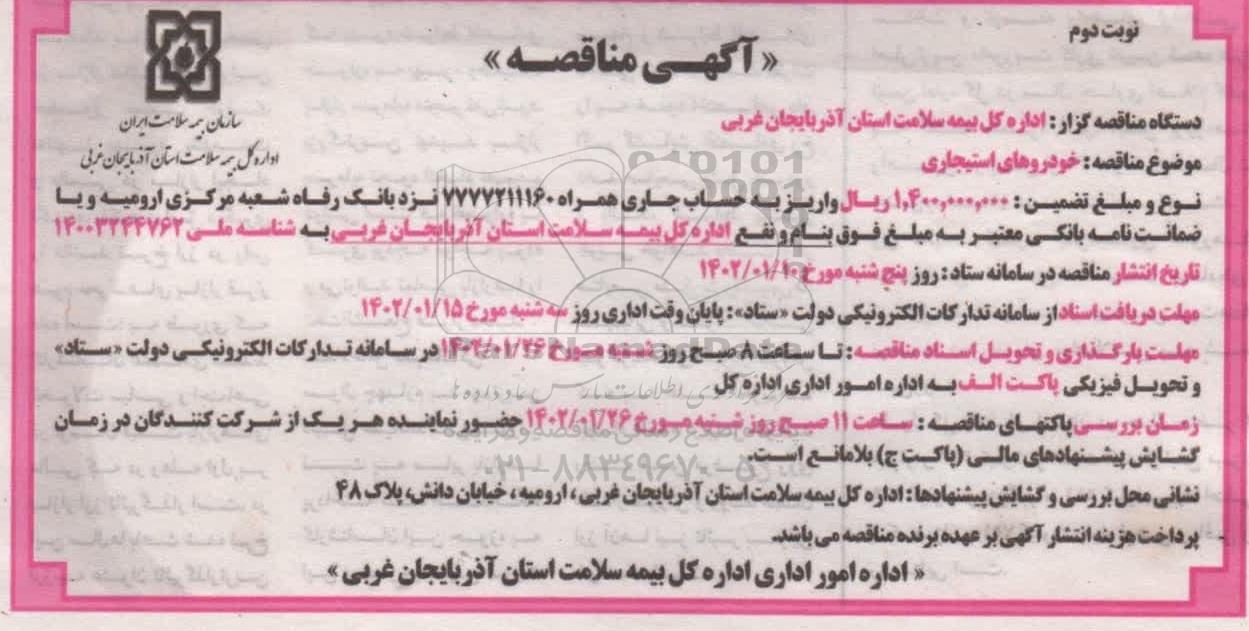 نوبت دوم
« آگهـی مناقصـه »
سازمان بیمه سلامت ایران
اداره کل بیمه سلامت استان آذربایجان غربی
دستگاه مناقصه گزار : اداره کل بیمه سلامت استان آذربایجان غربی
موضوع مناقصه : خودروهای استیجاری
نوع و مبلغ تضمین : ۱,۴۰۰,۰۰۰,۰۰۰ ریال واریز به حساب جاری همراه ۷۷۷۷۲۱۱۱۶۰ نزد بانک رفاه شعبه مرکزی ارومیه و یا
ضمانت نامه بانکی معتبر به مبلغ فوق بنام و نفع اداره کل بیمه سلامت استان آذربایجان غربی به شناسه ملی ۱۴۰۰۳۲۴۴۷۶۲
تاریخ انتشار مناقصه در سامانه ستاد : روز پنج شنبه مورخ ۱۴۰۲/۰۱/۱۰
مهلت دریافت اسناد از سامانه تدارکات الکترونیکی دولت «ستاد» : پایان وقت اداری روز سه شنبه مورخ ۱۴۰۲/۰۱/۱۵
مهلت بارگذاری و تحویل اسناد مناقصه : تا ساعت ۸ صبح روز شنبه مورخ ۱۴۰۲/۰۱/۲۶ در سامانه تدارکات الکترونیکی دولت «ستاد»
و تحویل فیزیکی پاکت الف به اداره امور اداری اداره کل
زمان بررسی پاکتهای مناقصه : ساعت ۱۱ صبح روز شنبه مورخ ۱۴۰۲/۰۱/۲۶ حضور نماینده هر یک از شرکت کنندگان در زمان
گشایش پیشنهادهای مالی (پاکت ج) بلامانع است.
نشانی محل بررسی و گشایش پیشنهادها : اداره کل بیمه سلامت استان آذربایجان غربی ، ارومیه ، خیابان دانش، پلاک ۴۸
پرداخت هزینه انتشار آگهی بر عهده برنده مناقصه می باشد.
« اداره امور اداری اداره کل بیمه سلامت استان آذربایجان غربی »